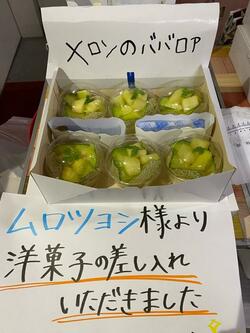 メロンのババロア
ムロツヨシ様より
洋菓子の差し入れ
いただきました